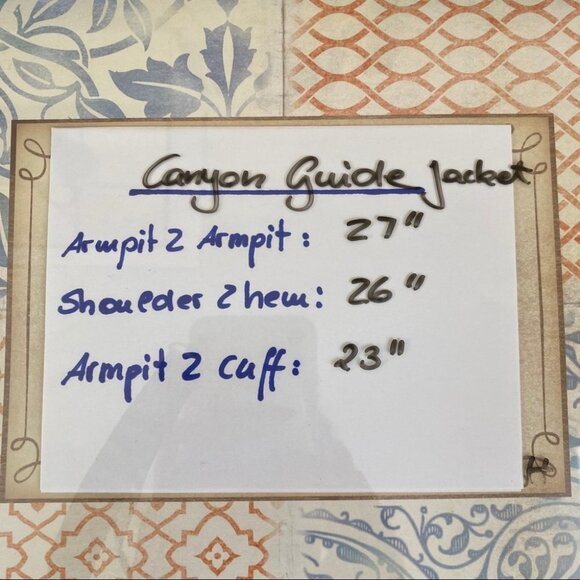 Canyon Guide Jacket
Armpit 2 Armpit: 27"
Shoulder 2 hem: 26"
Armpit 2 Cuff: 23"